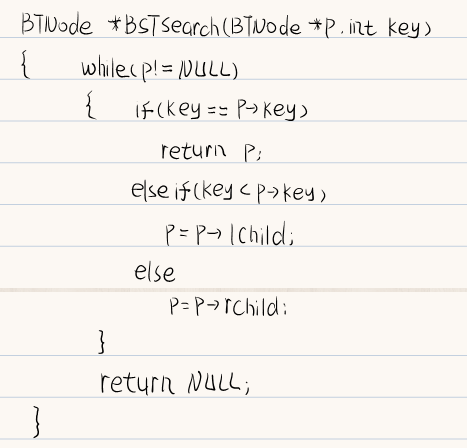 BTNode *BSTsearch(BTNode *p.int key)
{ while(p!=NULL)
{ if(key == p→key)
return p;
else if(key < p→key)
p = p→lchild;
else
p=p→rchild;
}
return NULL;
}